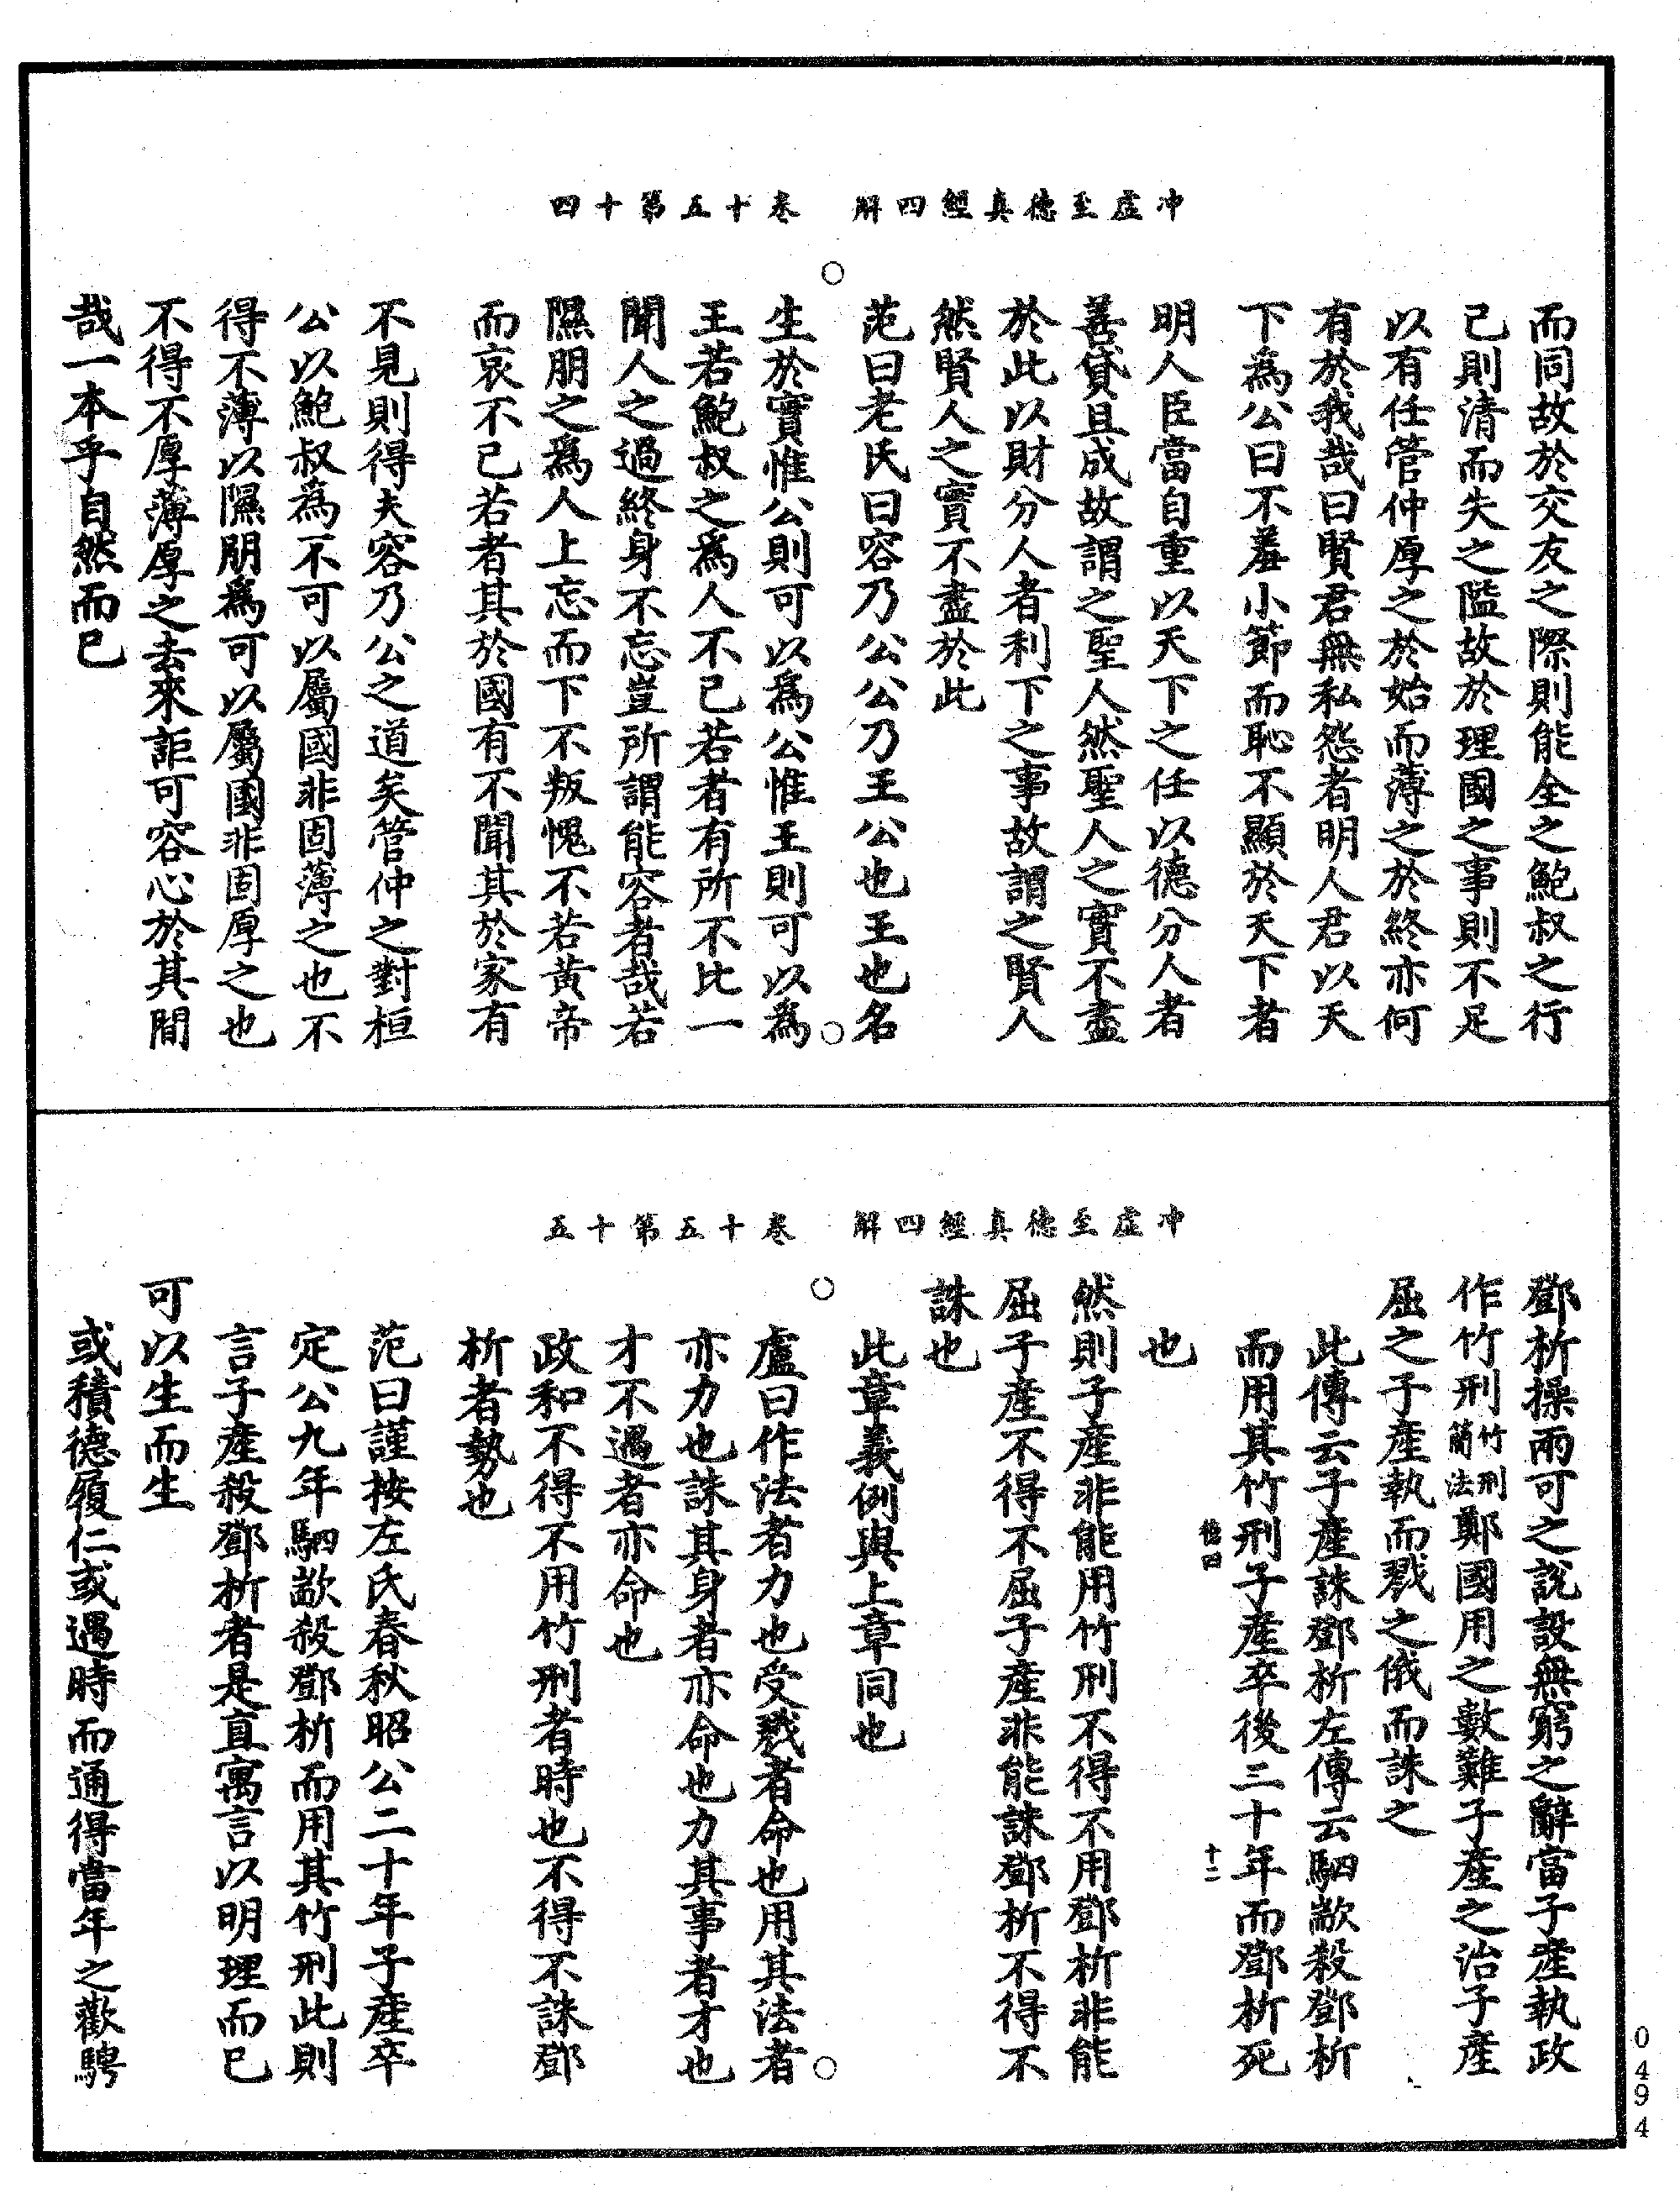 冲虛至德真經四解　卷十五第十四
而同故於交友之際則能全之鮑叔之行
己則清而失之隘故於理國之事則不足
以有任管仲厚之於始而薄之於終亦何
有於我哉曰賢君無私怨者明人君以天
下爲公曰不羞小節而恥不顯於天下者
明人臣當自重以天下之任以德分人者
善貸且成故謂之聖人然聖人之實不盡
於此以財分人者利下之事故謂之賢人
然賢人之實不盡於此
范曰老氏曰容乃公公乃王公也王也名
生於實惟公則可以爲公惟王則可以爲
王若鮑叔之爲人不己若者有所不比一
聞人之過終身不忘豈所謂能容者哉若
隰朋之爲人上忘而下不叛愧不若黃帝
而哀不己若者其於國有不聞其於家有
不見則得夫容乃公之道矣管仲之對桓
公以鮑叔爲不可以屬國非固薄之也不
得不薄以隰朋爲可以屬國非固厚之也
不得不厚薄厚之去來詎可容心於其間
哉一本乎自然而已
冲虛至德真經四解　卷十五第十五
鄧析操兩可之說設無窮之辭當子產執政
作竹刑竹刑簡法鄭國用之數難子產之治子產
屈之子產執而戮之俄而誅之
此傳云子產誅鄧析左傳云駟歂殺鄧析
而用其竹刑子產卒後二十年而鄧析死
十二
也
然則子產非能用竹刑不得不用鄧析非能
屈子產不得不屈子產非能誅鄧析不得不
誅也
此章義例與上章同也
盧曰作法者力也受戮者命也用其法者
亦力也誅其身者亦命也力其事者才也
才不遇者亦命也
政和不得不用竹刑者時也不得不誅鄧
析者勢也
范曰謹按左氏春秋昭公二十年子產卒
定公九年駟歂殺鄧析而用其竹刑此則
言子產殺鄧析者是直寓言以明理而已
可以生而生
或積德履仁或遇時而通得當年之歡騁
0494